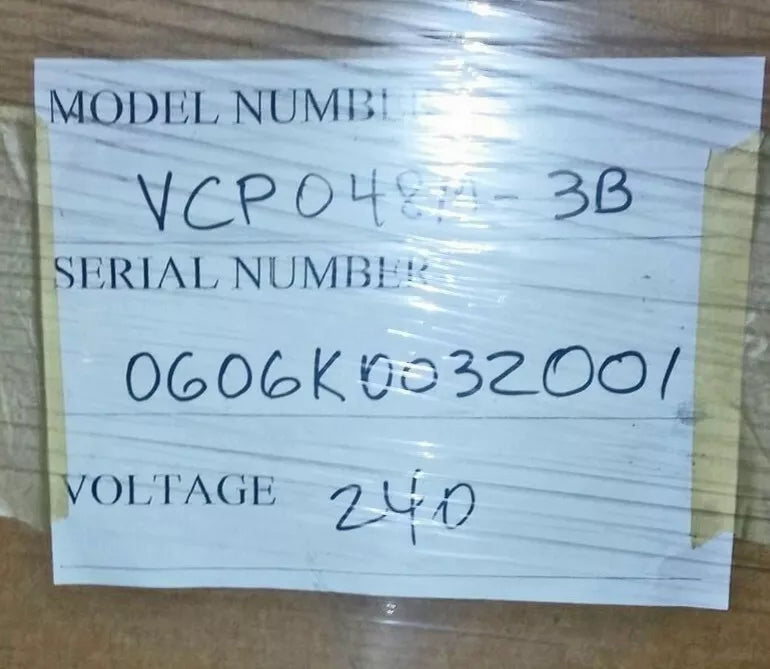 MODEL NUMBER
VCP048M-3B
SERIAL NUMBER
0606K0032001
VOLTAGE 240